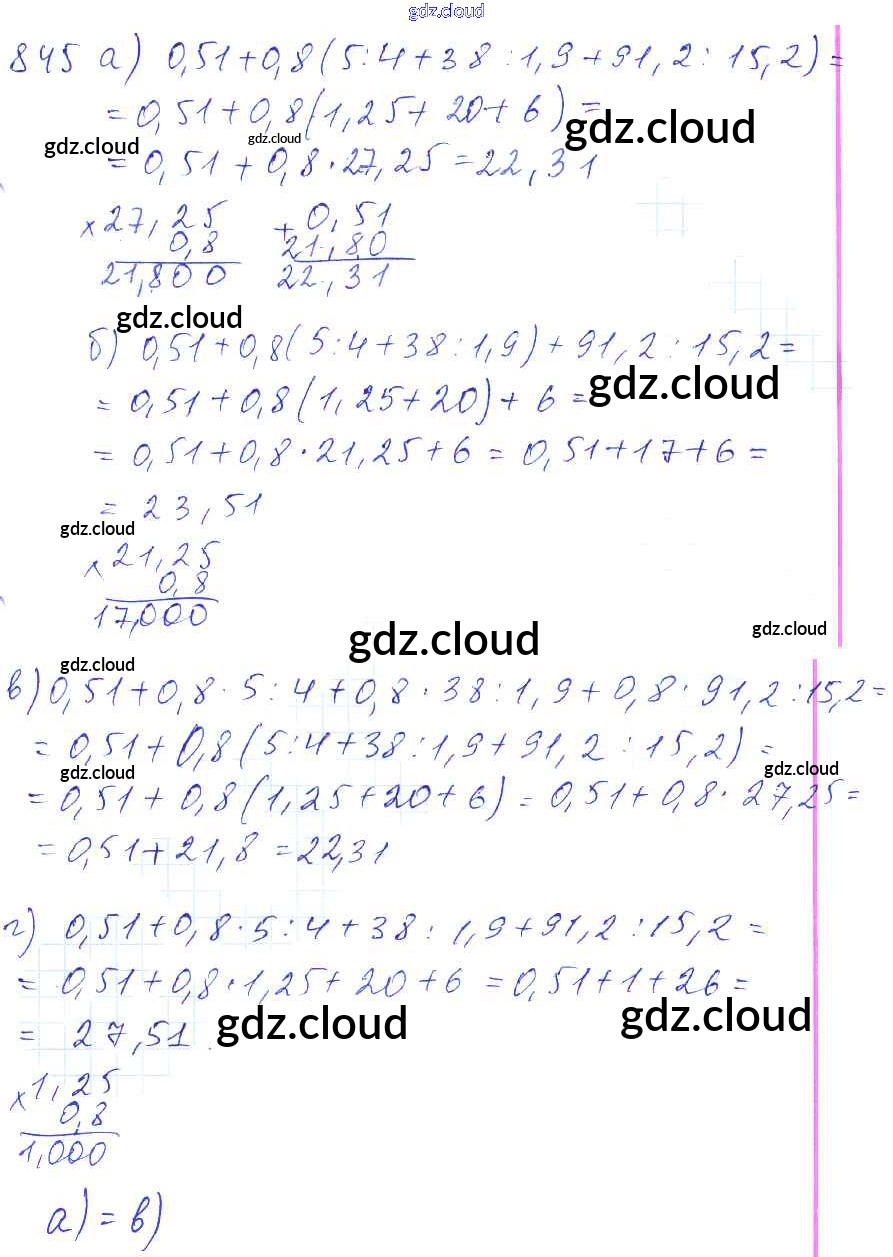 gdz.cloud
845 а) 0,51+0,8(5:4+38:1,9+91,2:15,2)=
=0,51+0,8(1,25+20+6)=
gdz.cloud gdz.cloud gdz.cloud
=0,51+0,8·27,25=22,31
×27,25 +0,51
0,8 21,80
21,800 22,31
gdz.cloud
б) 0,51+0,8(5:4+38:1,9)+91,2:15,2=
gdz.cloud
=0,51+0,8(1,25+20)+6=
=0,51+0,8·21,25+6=0,51+17+6=
=23,51
gdz.cloud
×21,25
0,8
17,000
gdz.cloud gdz.cloud
gdz.cloud
в) 0,51+0,8·5:4+0,8·38:1,9+0,8·91,2:15,2=
=0,51+0,8(5:4+38:1,9+91,2:15,2)=
gdz.cloud gdz.cloud
=0,51+0,8(1,25+20+6)=0,51+0,8·27,25=
=0,51+21,8=22,31
г) 0,51+0,8·5:4+38:1,9+91,2:15,2=
=0,51+0,8·1,25+20+6=0,51+1+26=
=27,51
gdz.cloud gdz.cloud
×1,25
0,8
1,000
а)=в)